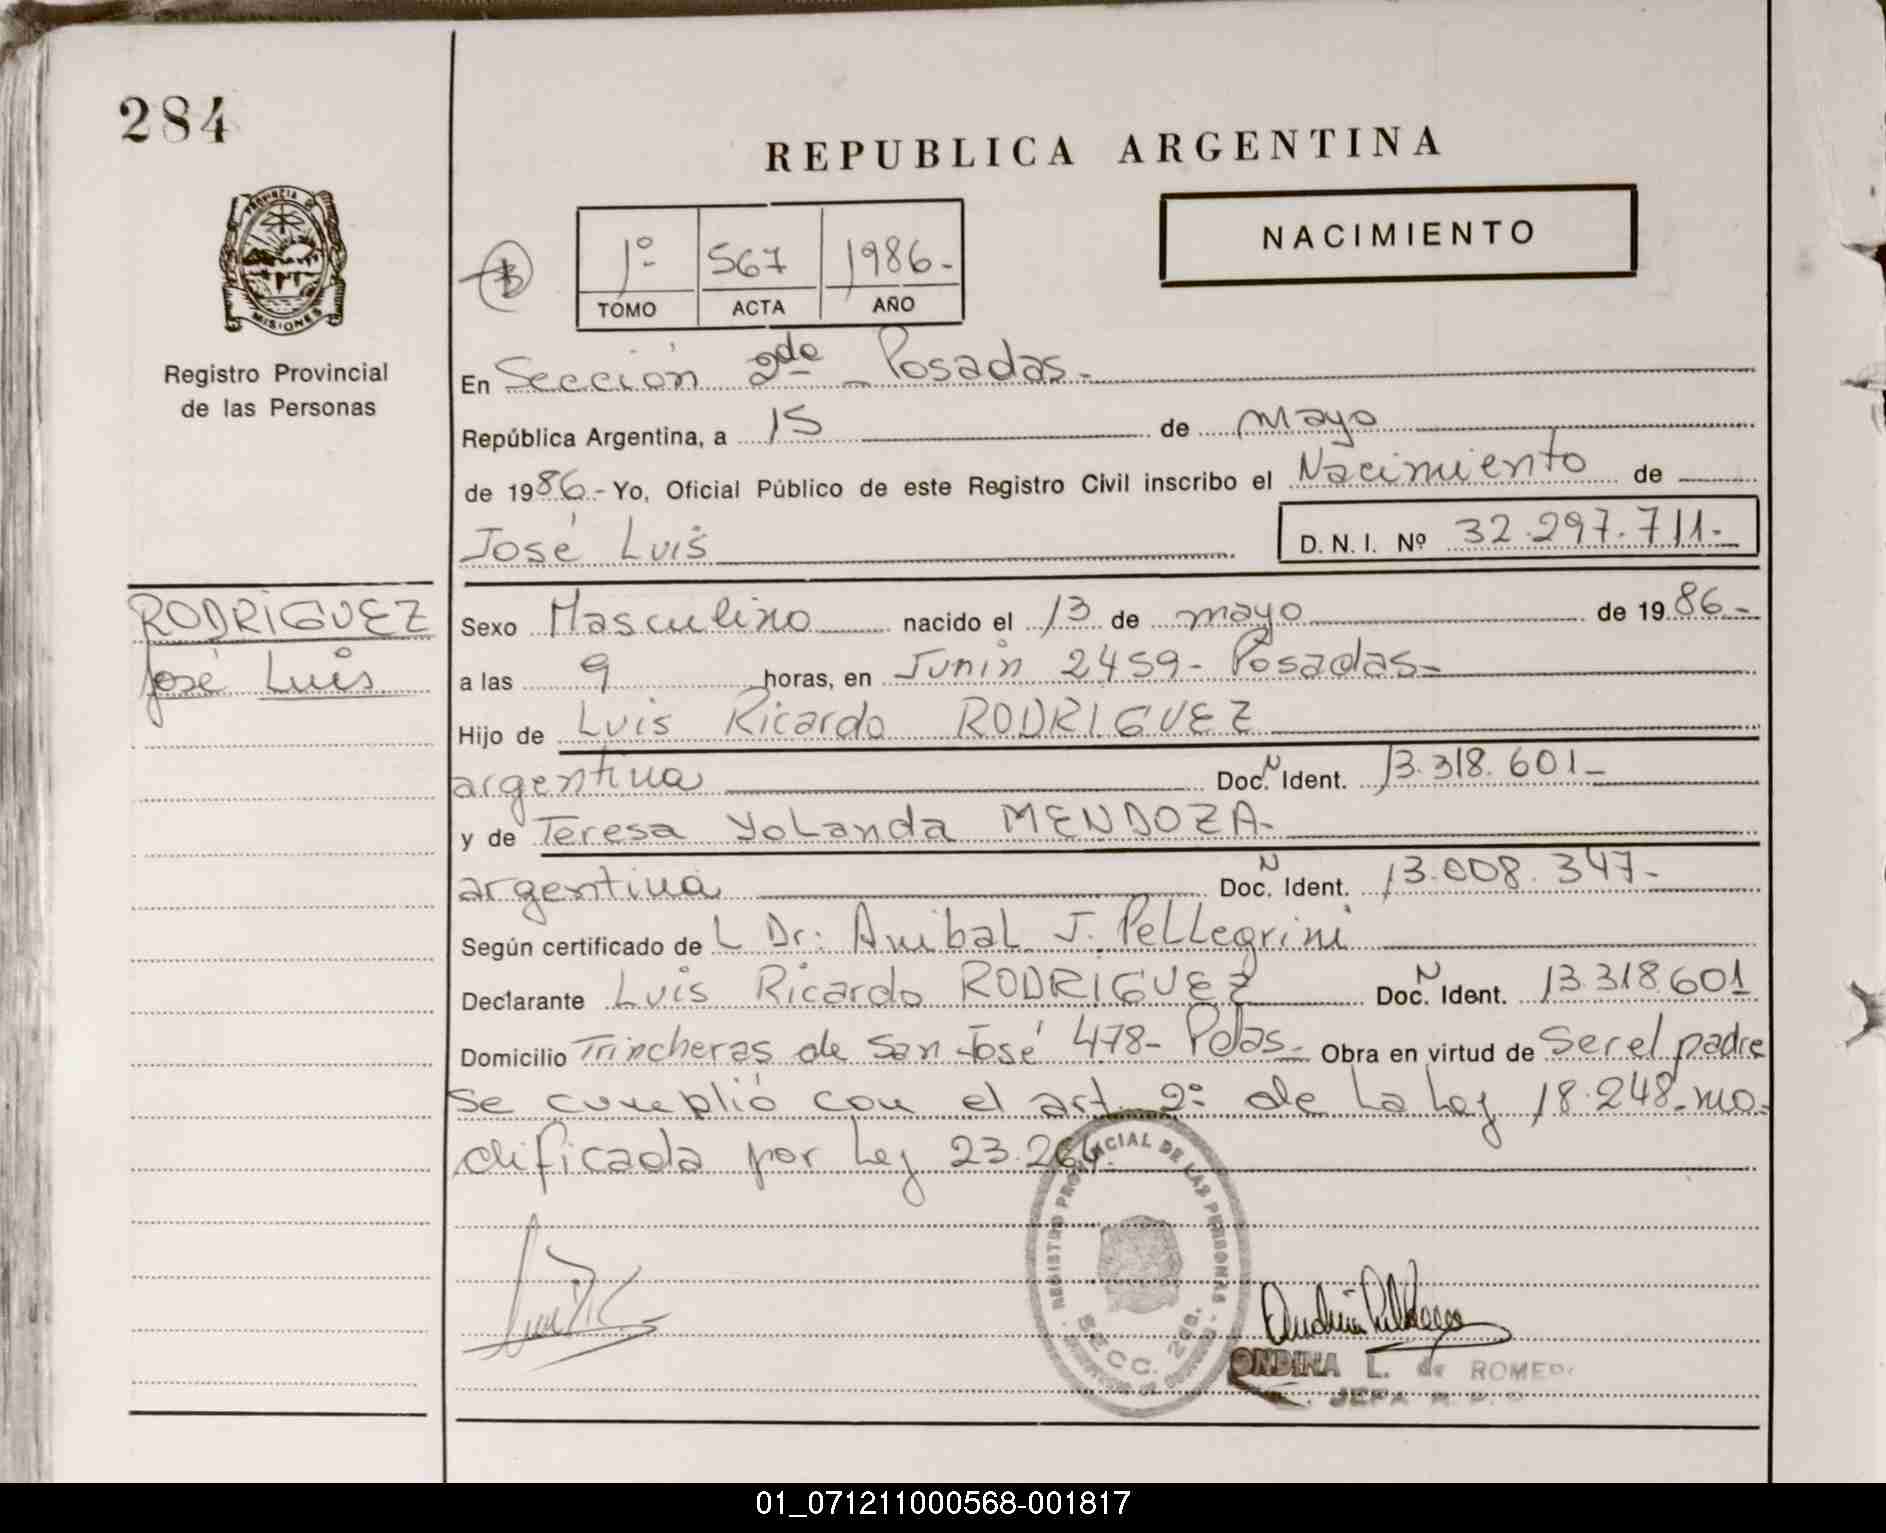 284
REPUBLICA ARGENTINA
PROVINCIA DE
MISIONES
Registro Provincial
de las Personas
1º 567 1986-
TOMO ACTA AÑO
NACIMIENTO
En Sección 2da - Posadas-
República Argentina, a 15 de mayo
de 1986.- Yo, Oficial Público de este Registro Civil inscribo el Nacimiento de
José Luis D. N. I. Nº 32.297.711-
RODRIGUEZ
José Luis
Sexo Masculino nacido el 13 de mayo de 1986-
a las 9 horas, en Junin 2459- Posadas-
Hijo de Luis Ricardo RODRIGUEZ
argentina Doc.N Ident. 13.318.601-
y de Teresa Yolanda MENDOZA-
argentina Doc.N Ident. 13.008.347-
Según certificado de L Dr. Anibal J. Pellegrini
Declarante Luis Ricardo RODRIGUEZ Doc.N Ident. 13.318.601
Domicilio Trincheras de San José 478- Pdas- Obra en virtud de Ser el padre
se cumplió con el art. 2º de la Ley 18.248-mo-
dificada por Ley 23.264.
REGISTRO PROVINCIAL DE LAS PERSONAS
SECC. 2da.
ONDINA L. de ROMERO
JEFA R. P.
01_071211000568-001817